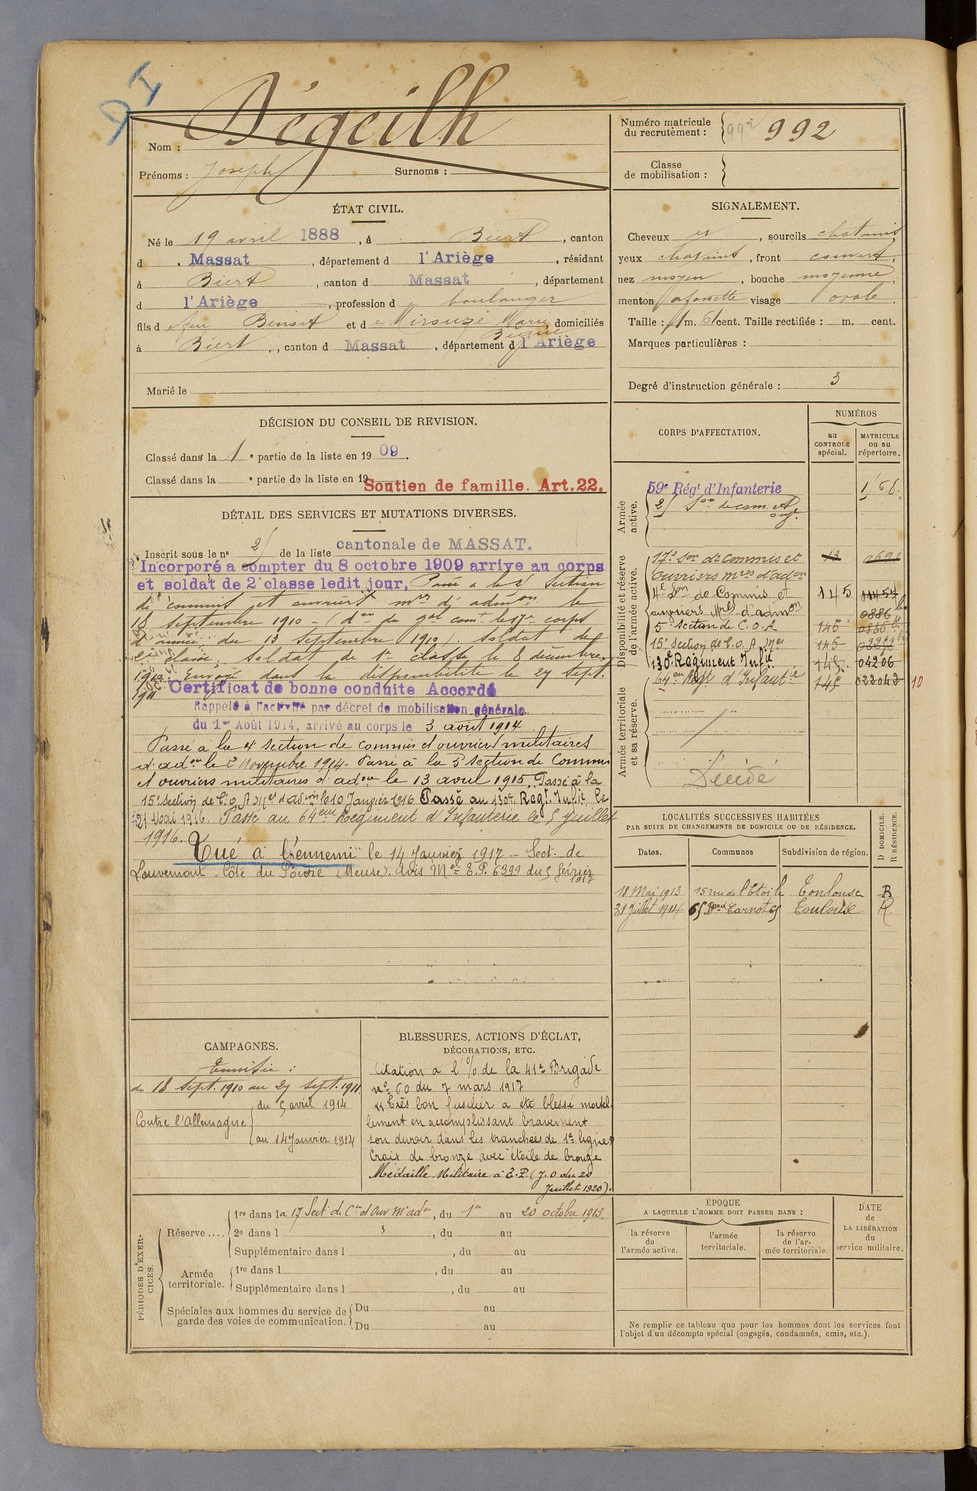 Nom : Dégeilh
Prénoms : Joseph Surnoms :
Numéro matricule du recrutement : 992
Classe de mobilisation :
ÉTAT CIVIL.
Né le 19 avril 1888, à Biert, canton
d Massat, département d l'Ariège, résidant
à Biert, canton d Massat, département
d l'Ariège, profession d boulanger
fils d feu Benoit et d Mirouze Marie domiciliés
à Biert, canton d Massat, département d l'Ariège
Marié le
SIGNALEMENT.
Cheveux et, sourcils chatains
yeux chatains, front couvert,
nez moyen, bouche moyenne,
menton à fossette visage ovale
Taille : 1 m. 61 cent. Taille rectifiée : m. cent.
Marques particulières :
Degré d'instruction générale : 3
DÉCISION DU CONSEIL DE REVISION.
Classé dans la 1e partie de la liste en 1909.
Classé dans la e partie de la liste en 19
Soutien de famille. Art.22.
DÉTAIL DES SERVICES ET MUTATIONS DIVERSES.
Inscrit sous le no 2 de la liste cantonale de MASSAT.
Incorporé à compter du 8 octobre 1909 arrivé au corps
et soldat de 2e classe ledit jour, Passé à la 2e Section
de commis et ouvriers mres d'admon le
18 Septembre 1910
du 13 Septembre 1910 Soldat de
classe, Soldat de 1re classe le 8 décembre
1910 Envoyé dans la disponibilité le 27 Sept.
1911
Certificat de bonne conduite Accordé
Rappelé à l'activité par décret de mobilisation générale
du 1er Août 1914, arrivé au corps le 3 août 1914
Passé à la 4e section de commis et ouvriers militaires
d'adon le 2 Novembre 1914. Passé à la 5e Section de Commis
et ouvriers militaires d'adon le 13 avril 1915. Passé à la
15e Section de C. O. A Mres d'admin le 10 Janvier 1916 Passé au 130e Regt. Infie le
21 Mai 1916. Passé au 64eme Régiment d'Infanterie le 5 Juillet
1916.
Tué à l'ennemi le 14 Janvier 1917 - Sect. de
Louvemont Côte du Poivre (Meuse). Avis Mel E.P. 6399 du 5 février
1917
CORPS D'AFFECTATION.
NUMÉROS
au CONTROLE spécial.
MATRICULE ou au répertoire.
Armée active.
59e Régt d'Infanterie
Disponibilité et réserve de l'armée active.
17e Son de Commis et
Ouvriers mres d'adon
4e Son de Commis et 145
ouvriers Mres d'admon
5e Section de C.O.A 145
15e Section de C. O. A. Mre 145
130e Régiment Infie 145 04206
64eme Regt d'Infantie 145 023043 10
Armée territoriale et sa réserve.
Décédé
LOCALITÉS SUCCESSIVES HABITÉES
PAR SUITE DE CHANGEMENTS DE DOMICILE OU DE RÉSIDENCE.
Dates. Communes Subdivision de région. D DOMICILE. R RÉSIDENCE.
18 Mai 1913 15 rue de l'Etoile Toulouse R
31 Juillet 1914 65 Bard Carnot 65 Toulouse R.
CAMPAGNES.
Tunisie :
du 18 Sept. 1910 au 27 Sept. 1911
Contre l'Allemagne du 5 avril 1914
au 14 Janvier 1914
BLESSURES, ACTIONS D'ÉCLAT,
DÉCORATIONS, ETC.
Citation à l'% de la 41e Brigade
no 60 du 7 mars 1917
"Très bon fusilier a été blessé mortel
lement en accomplissant bravement
son devoir dans les tranchées de 1re ligne"
Croix de bronze avec étoile de bronze
Médaille Militaire à E. P. (J. O du 20
Juillet 1920).
PÉRIODES D'EXERCICES.
Réserve....
1re dans la 17 Sect de Cis d'Ouv M adon, du 1er au 20 octobre 1913
2e dans l , du au
Supplémentaire dans l , du au
Armée territoriale.
1re dans l , du au
Supplémentaire dans l , du au
Spéciales aux hommes du service de garde des voies de communication.
Du au
Du au
ÉPOQUE
A LAQUELLE L'HOMME DOIT PASSER DANS :
la réserve de l'armée active.
l'armée territoriale.
la réserve de l'armée territoriale
DATE de LA LIBÉRATION du service militaire.
Ne remplir ce tableau que pour les hommes dont les services font
l'objet d'un décompte spécial (engagés, condamnés, omis, etc.).